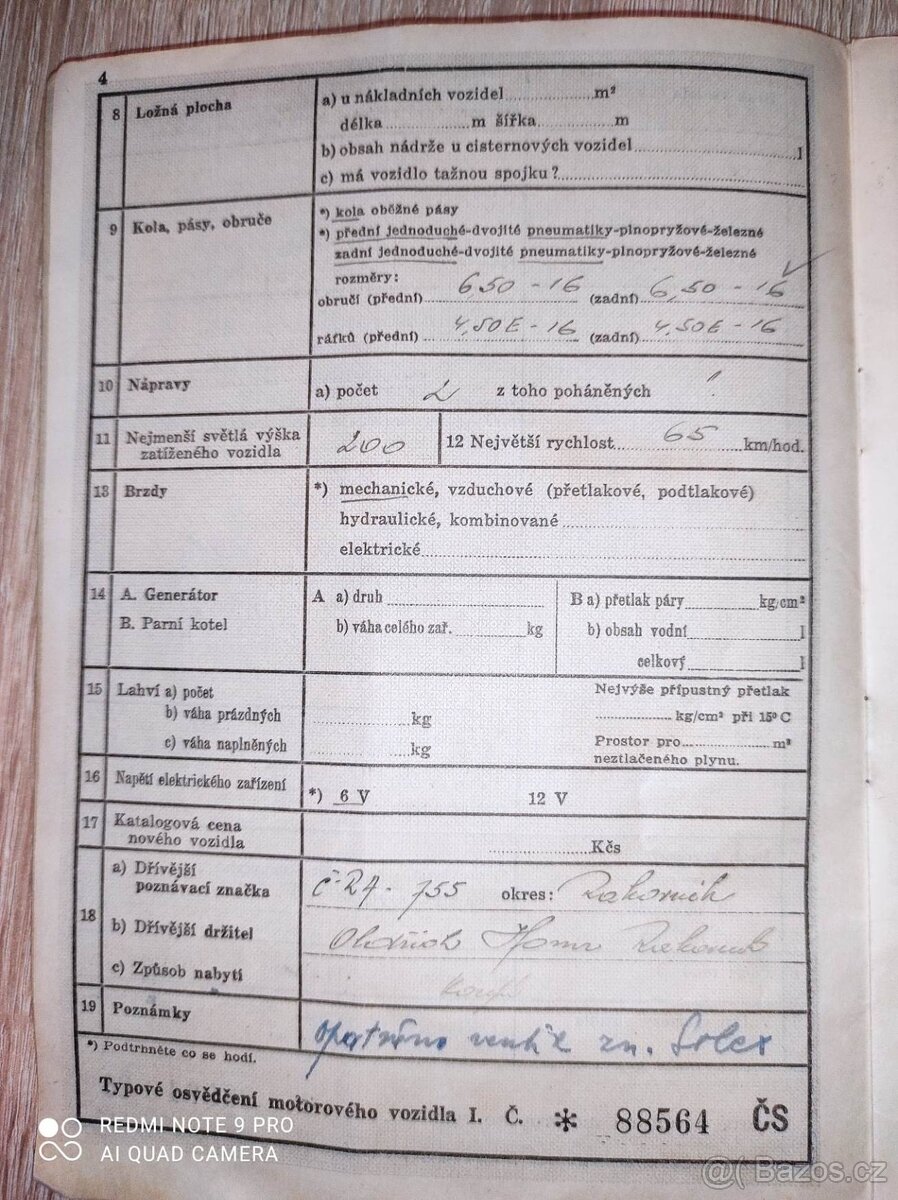 4
8 Ložná plocha a) u nákladních vozidel m²
délka m šířka m
b) obsah nádrže u cisternových vozidel l
c) má vozidlo tažnou spojku?
9 Kola, pásy, obruče *) kola oběžné pásy
*) přední jednoduché-dvojité pneumatiky-plnopryžové-železné
zadní jednoduché-dvojité pneumatiky-plnopryžové-železné
rozměry:
obručí (přední) 6,50 - 16 (zadní) 6,50 - 16
ráfků (přední) 4,50E - 16 (zadní) 4,50E - 16
10 Nápravy a) počet 2 z toho poháněných
11 Nejmenší světlá výška zatíženého vozidla 200 12 Největší rychlost 65 km/hod.
13 Brzdy *) mechanické, vzduchové (přetlakové, podtlakové)
hydraulické, kombinované
elektrické
14 A. Generátor A a) druh B a) přetlak páry kg/cm²
B. Parní kotel b) váha celého zař. kg b) obsah vodní l
celkový l
15 Lahví a) počet Nejvýše přípustný přetlak
b) váha prázdných kg kg/cm² při 15° C
c) váha naplněných kg Prostor pro m³
neztlačeného plynu.
16 Napětí elektrického zařízení *) 6 V 12 V
17 Katalogová cena
nového vozidla Kčs
18 a) Dřívější
poznávací značka Č-24-755 okres: Rakovník
b) Dřívější držitel Oldřich Rakovník
c) Způsob nabytí
19 Poznámky zn. Solex
*) Podtrhněte co se hodí.
Typové osvědčení motorového vozidla I. Č. * 88564 ČS
REDMI NOTE 9 PRO
AI QUAD CAMERA
Bazos.cz